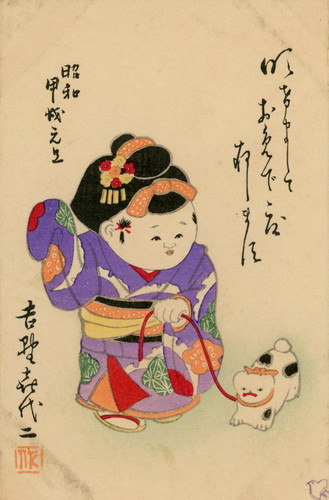 明まして
お免で度
存ます
昭和
甲戌元旦
吉野喜代二